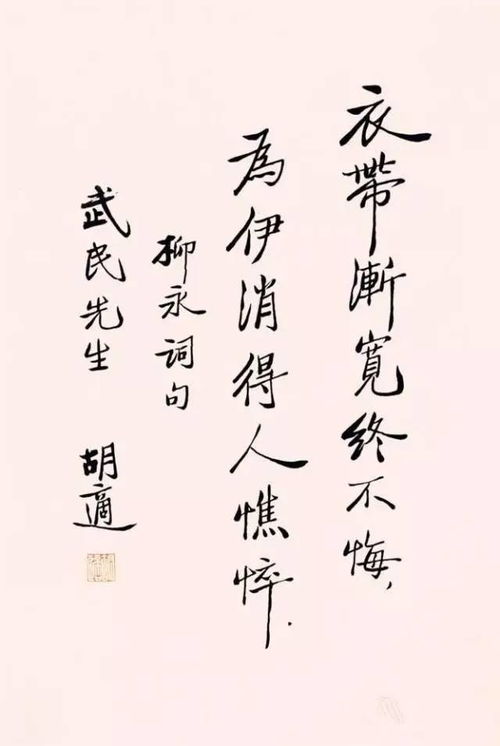 衣帶漸寬終不悔，
為伊消得人憔悴．
柳永詞句
武民先生
胡適